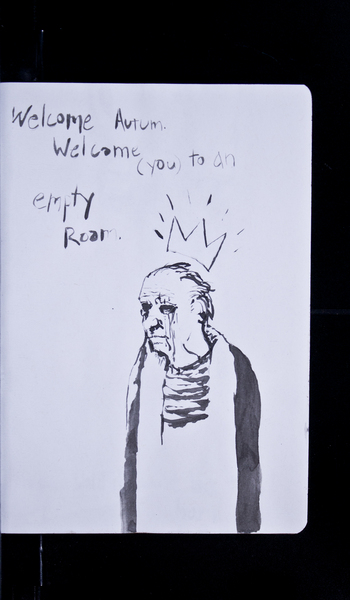 Welcome Autum.
Welcome (you) to an
empty
Room.